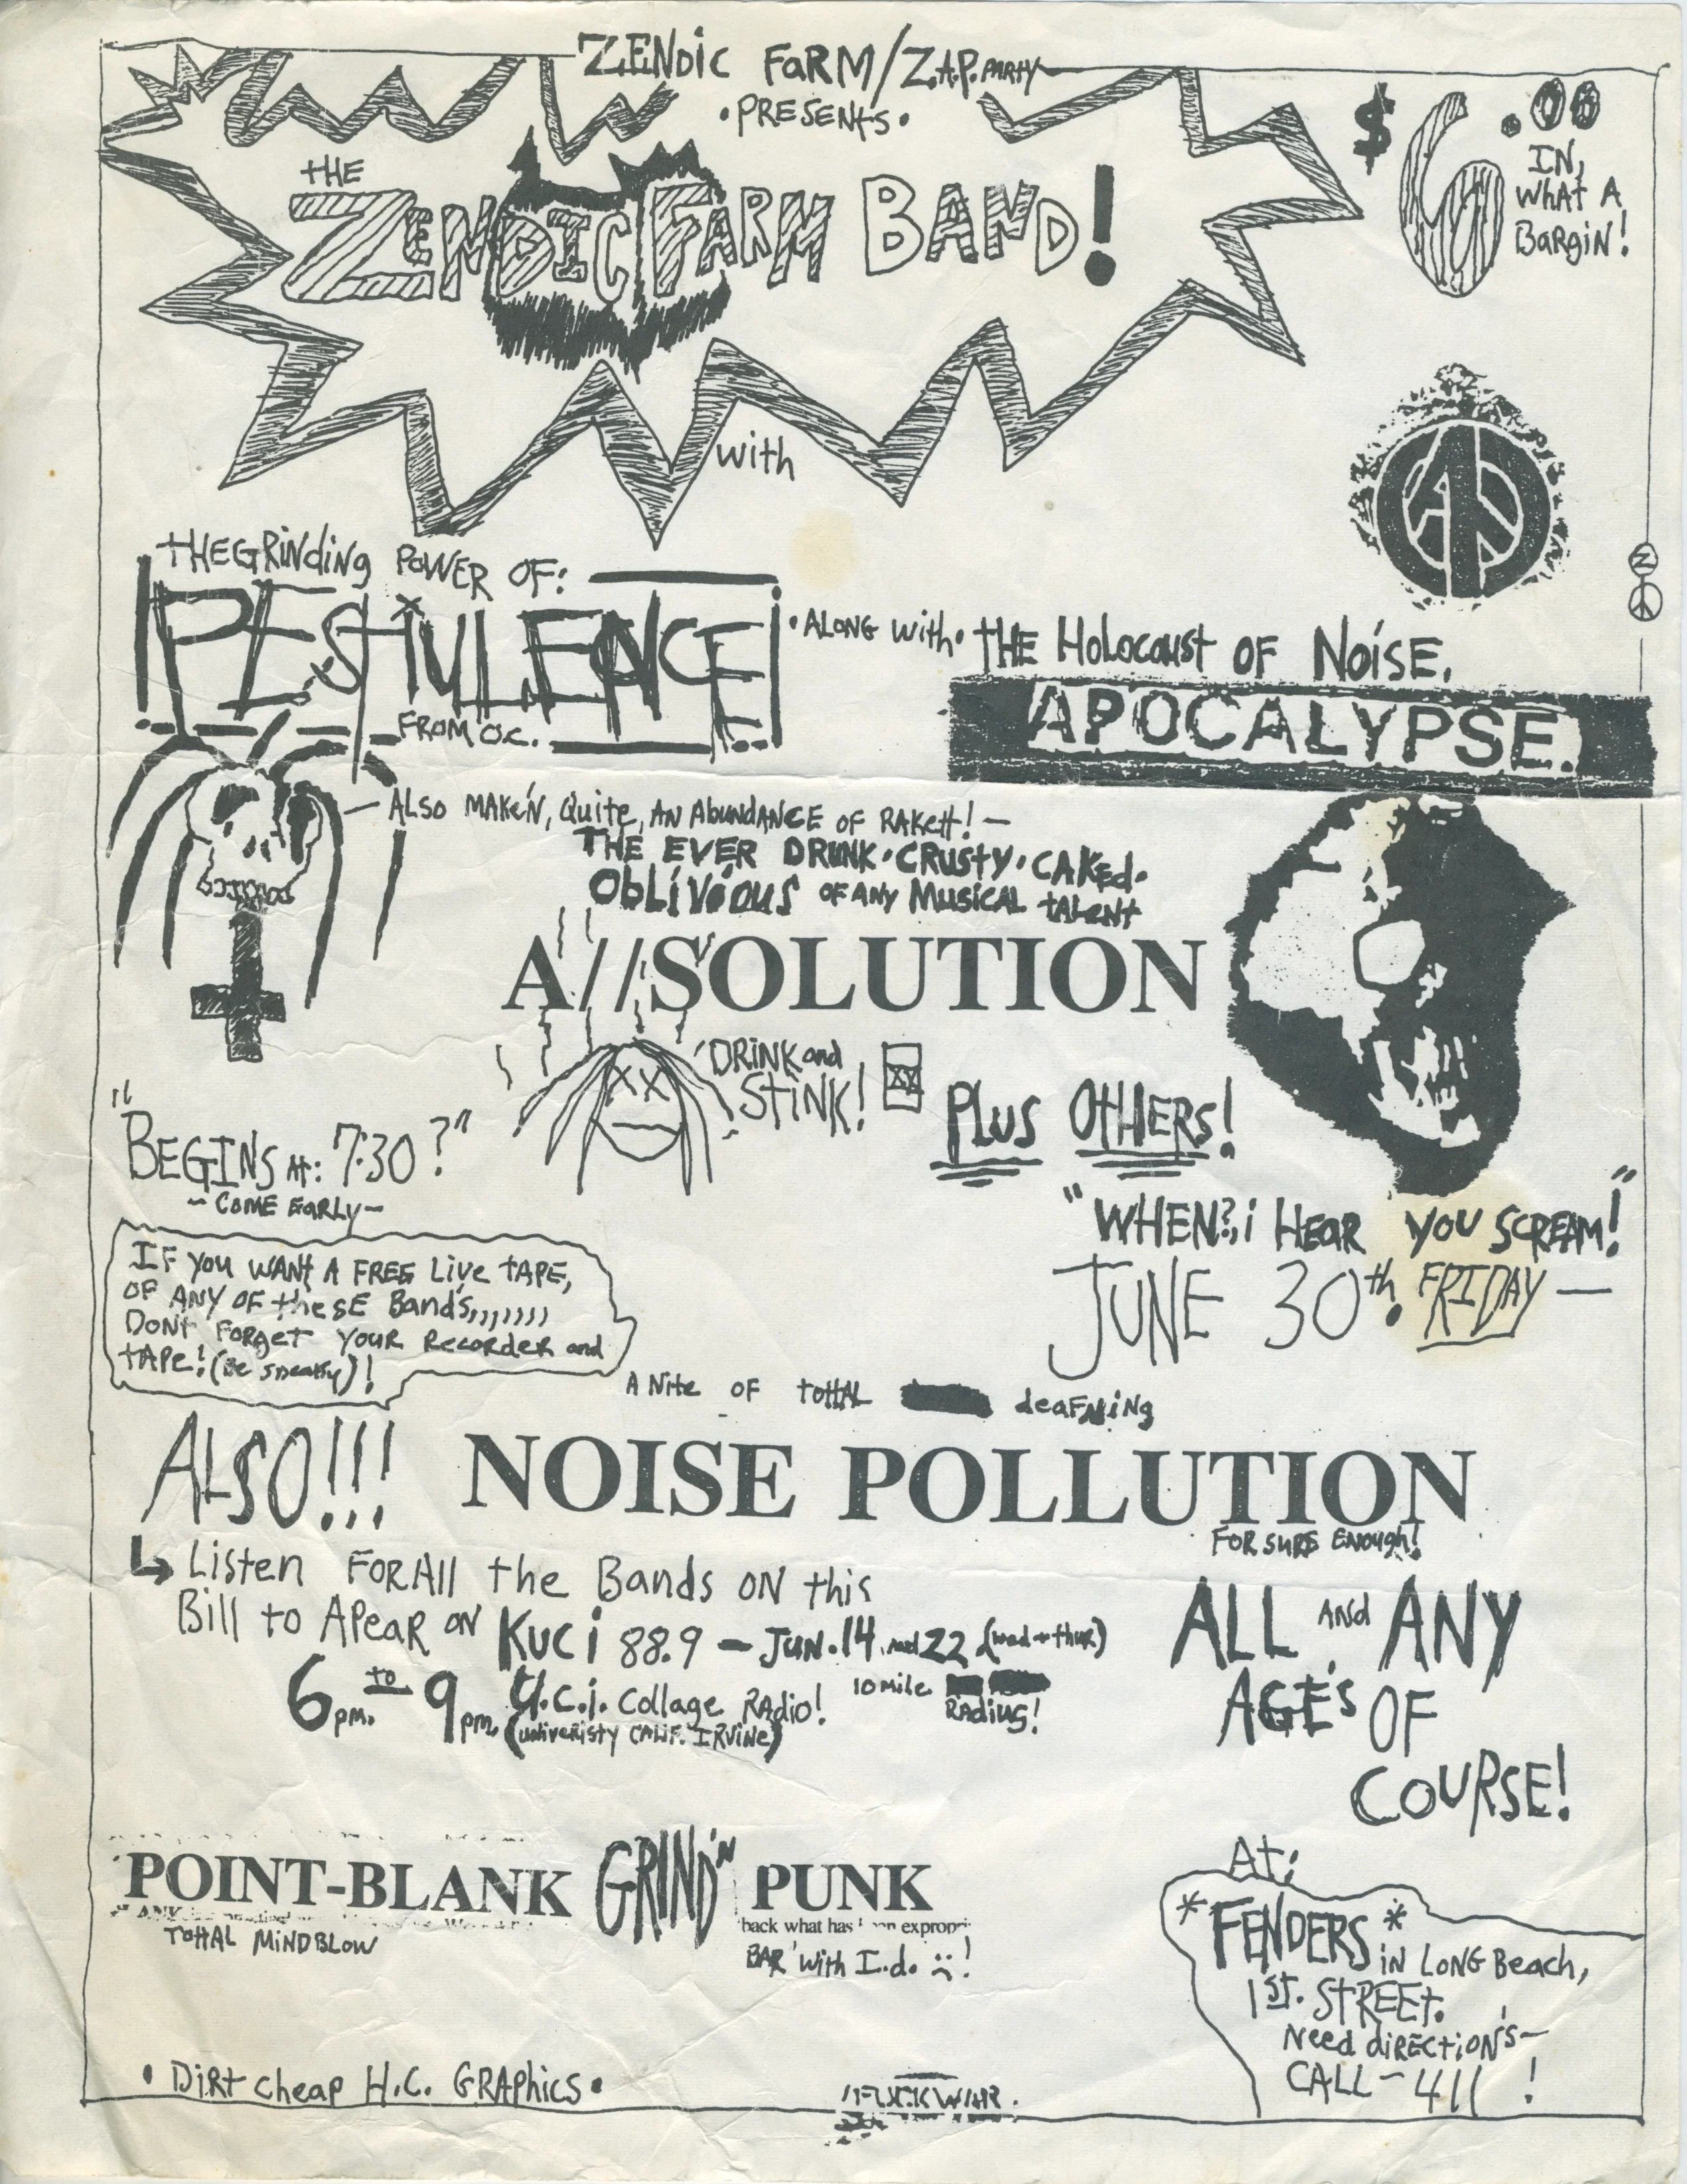 ZENDIC FARM/Z.A.P. PARTY
• PRESENTS •
THE
ZENDIC FARM BAND!
$6.00
IN,
WHAT A
BARGIN!
with
THE GRINDING POWER OF:
PESTULENCE
FROM O.C.
• ALONG WITH • THE HOLOCAUST OF NOISE.
APOCALYPSE.
— ALSO MAKE'N, QUITE, AN ABUNDANCE OF RAKETT! —
THE EVER DRUNK • CRUSTY • CAKED •
OBLIVIOUS OF ANY MUSICAL TALENT
A//SOLUTION
XX
'DRINK and
STINK!
XX
PLUS OTHERS!
"BEGINS AT: 7:30?"
~ COME EARLY ~
"WHEN?, i HEAR YOU SCREAM!"
JUNE 30th. FRIDAY —
IF YOU WANT A FREE LIVE TAPE,
OF ANY OF these BANDS,,,,,,,,
DONT FORGET YOUR RECORDER and
TAPE! (Be sneaky)!
A NITE OF TOTTAL deAFNiNg
ALSO!!!
NOISE POLLUTION
FOR SURE ENOUGH!
Listen FOR All the Bands ON this
Bill to APEAR ON KUCi 88.9 — JUN. 14 and 22 (wed → thur)
6pm. TO 9pm. U.C.I. Collage RADio! 10 mile RADiUS!
(univeristy CALIF. IRVINE)
ALL AND ANY
AGE'S OF
COURSE!
POINT-BLANK GRIND 'N PUNK
back what has
TOTTAL MINDBLOW
BAR with I.d. :(!
At:
*FENDERS* IN LONG Beach,
1ST. STREET.
Need diRECTiON'S —
CALL — 411 !
• DiRt cheap H.C. GRAphics •
FUCK WAR.